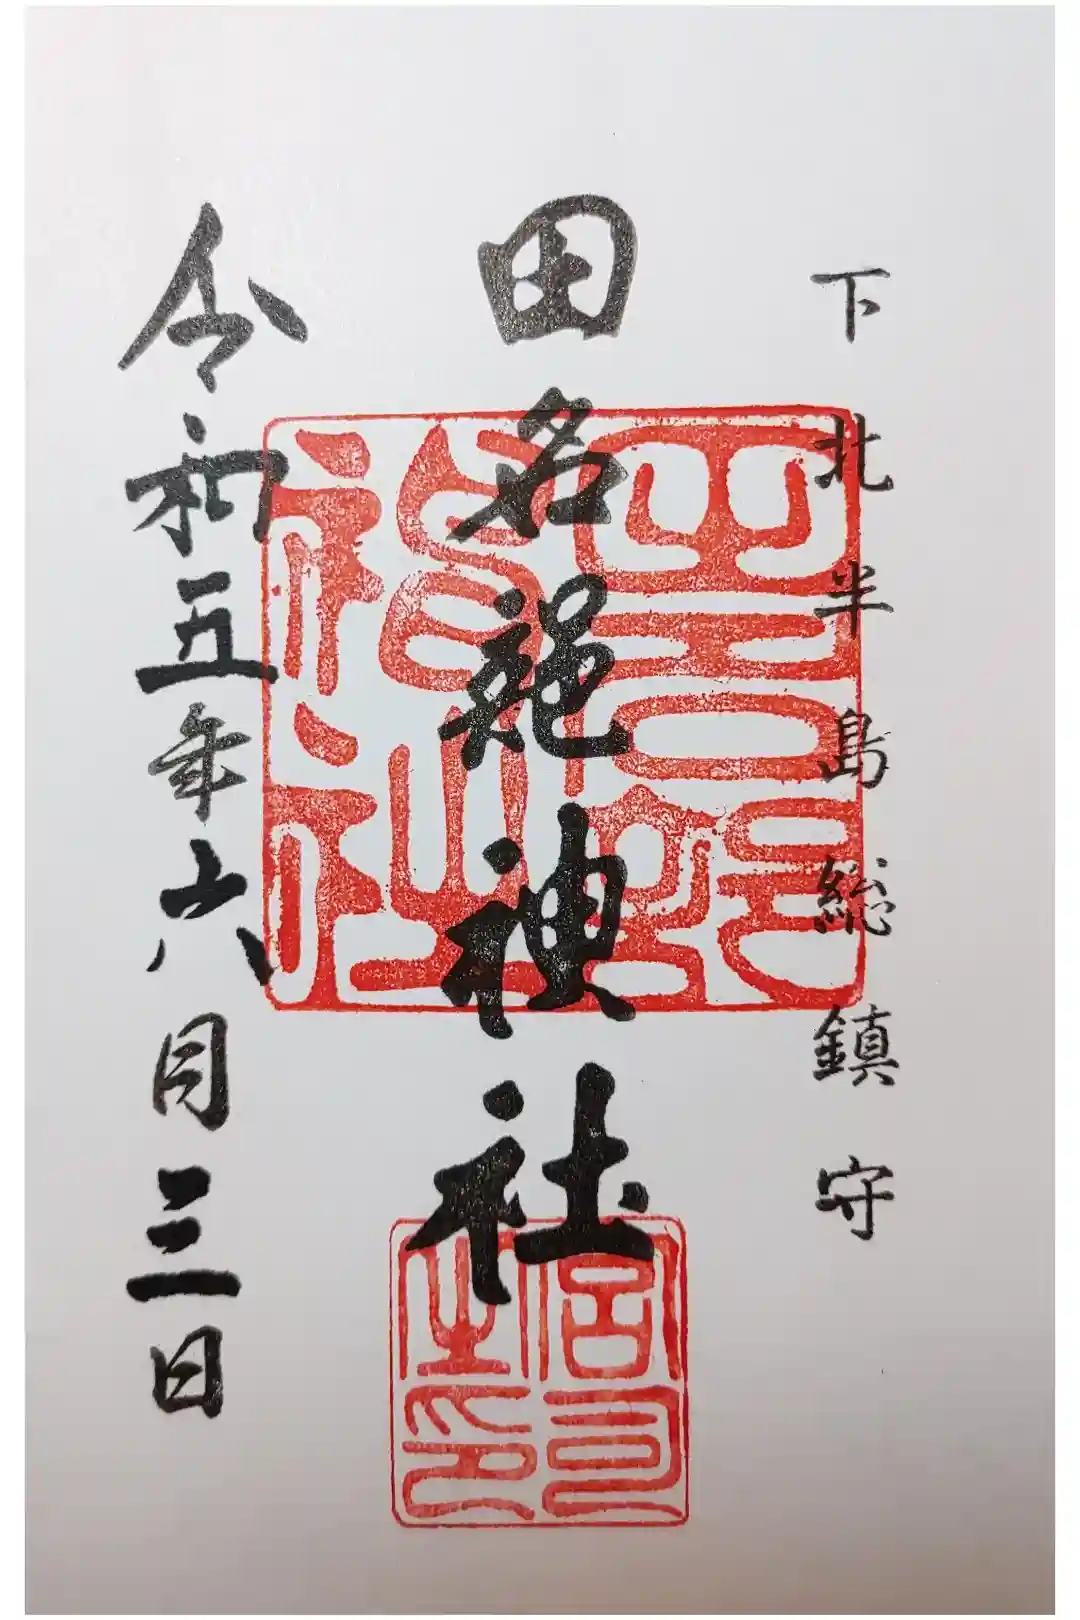 下北半島総鎮守
田名部神社
令和五年六月三日
宮司
之印